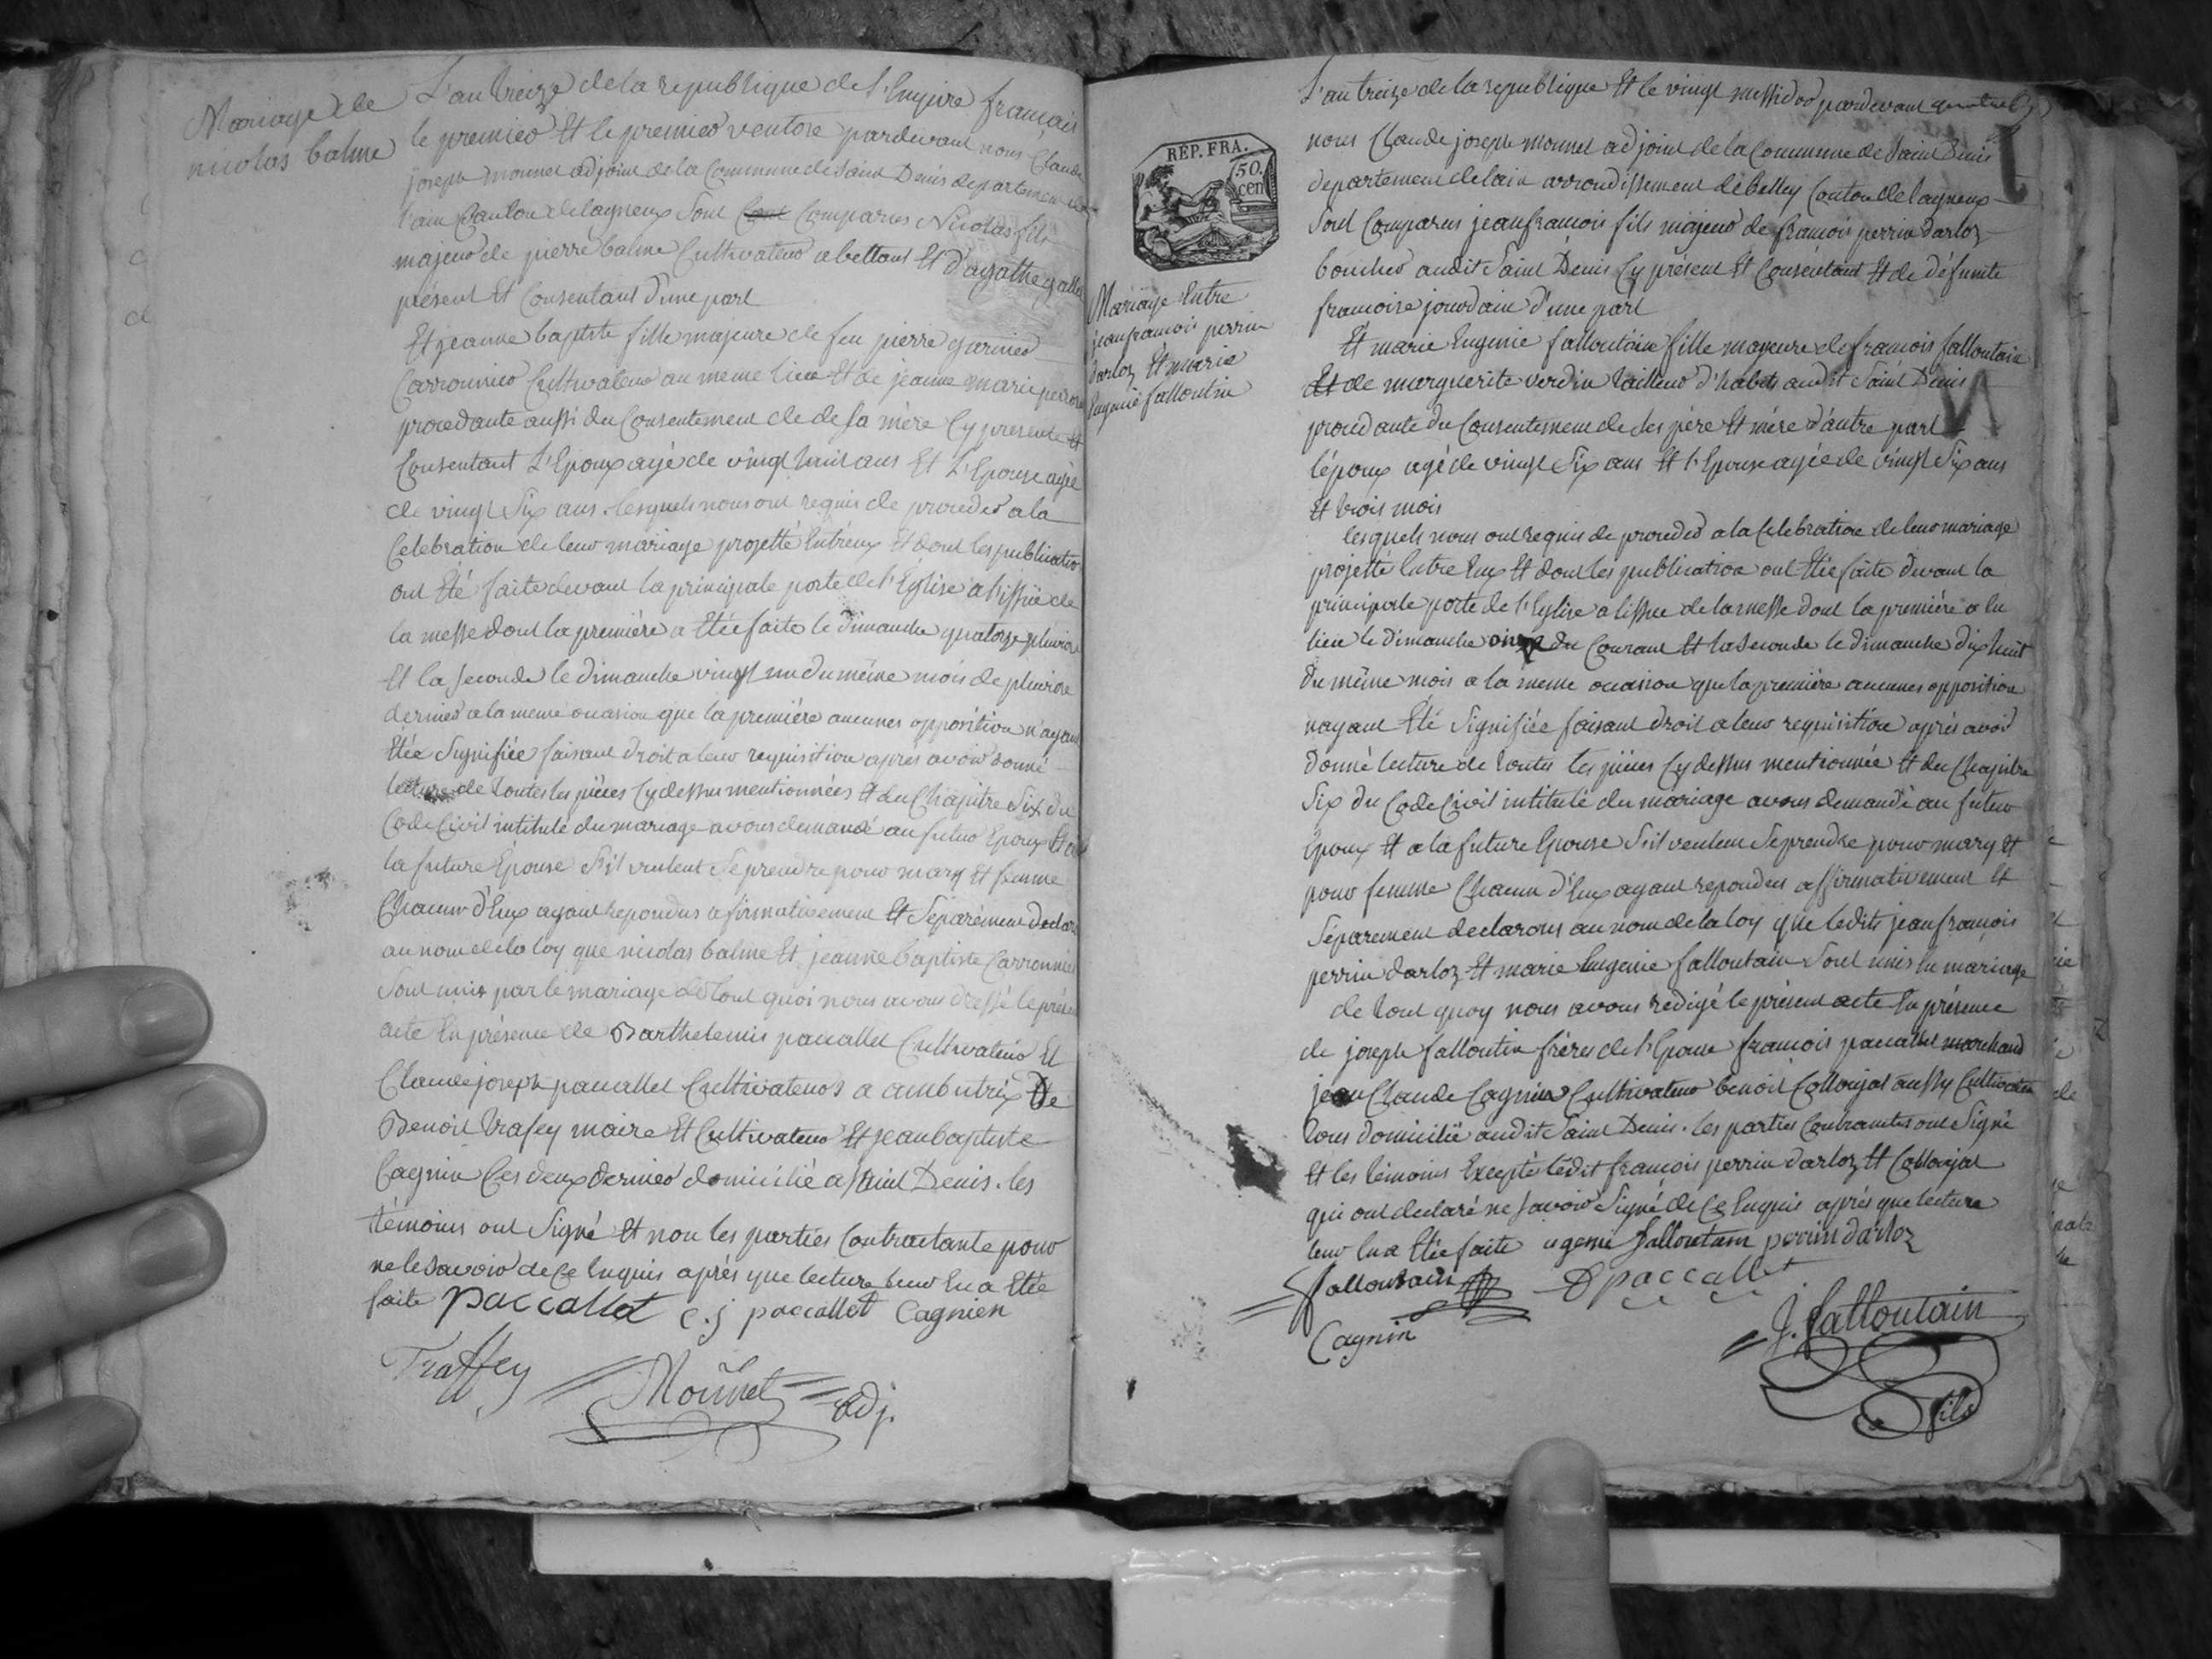 Mariage de
nicolas balme
L'an treize de la republique de l'Empire francais
le premier Et le premier ventose pardevant nous Claude
joseph monnet adjoint de la Commune de Saint Denis departement de
l'ain Canton de lagneux Sont Comparus Nicolas fils
majeur de pierre balme Cultivateur a bettant Et d'agathe
présent Et Consentant d'une part
Et jeanne baptiste fille majeure de feu pierre garnier
Carronnier Cultivateur au meme lieu Et de jeanne marie
procedante aussi du Consentement de de sa mère Cy presente Et
Consentant L'Epoux agé de vingt huit ans Et L'Epouse agée
de vingt Six ans. lesquels nous ont requis de proceder a la
Celebration de leur mariage projetté Entréux Et dont les publication
ont Eté faite devant la principale porte de l'Eglise a l'issüe de
la messe dont la première a Etée faite le dimanche quatorze pluviose
Et la seconde le dimanche vingt un du même mois de pluviose
dernier a la meme ocasion que la première aucunes opposition n'ayant
Etée Signifiée faisant droit a leur requisition après avoir donné
lecture de toutes les pièces Cy dessu mentionnées Et du Chapitre Six du
Code Civil intitulé du mariage avons demandé au futur Epoux Et a
la future Epouse S'il veulent Se prendre pour mary Et femme
Chacun d'Eux ayant repondus afirmativement Et Séparément declarons
au nom de la loy que nicolas balme Et jeanne baptiste Carronnier
Sont unis par le mariage de tout quoi nous avons dressé le présent
acte En présence de Barthelemis paccallet Cultivateur Et
Claude joseph paccallet Cultivateurs a ambutrix De
Benoit trafey maire Et Cultivateur Et jean baptiste
Cagnin Ces deux dernier domicilié a Saint Denis. les
témoins ont Signé Et non les parties Contractante pour
ne le Savoir de Ce Enquis après que lecture leur En a Etée
faite paccallet c.j paccallet Cagnien
Traffey Monnet adj.
REP. FRA.
50.
cen
Mariage Entre
jean francois perrin
darloz Et marie
Eugenie falloutin
L'an treize de la republique Et le vingt messidor pardevant
nous Claude joseph monnet adjoint de la Commune de Saint Denis
departement de lain arrondissement de belley Canton de lagneux
Sont Comparus jean francois fils majeur de francois perrin darloz
boucher audit Saint Denis Cy présent Et Consentant Et de défunte
francoise jourdain d'une part
Et marie Eugenie falloutain fille majeure de francois falloutain
Et de marguerite verdin tailleur d'habits audit Saint Denis
procedante du Consentement de Ses père Et mère d'autre part
l'époux agé de vingt Six ans Et l'Epouse agée de vingt Six ans
Et trois mois
lesquels nous ont requis de proceder a la Celebration de leur mariage
projetté Entre Eux Et dont les publication ont Etée faite devant la
principale porte de l'Eglise a lissue de la messe dont la première a Eu
lieu le dimanche onze du Courant Et la Seconde le dimanche dix huit
du même mois a la meme ocasion que la première aucunes opposition
nayant Eté Signifiée faisant droit a leur requisition après avoir
donné lecture de toutes les pièces Cy dessus mentionnée Et du Chapitre
Six du Code Civil intitulé du mariage avons demandé au futur
Epoux Et a la future Epouse S'il veulent Se prendre pour mary Et
pour femme Chacun d'Eux ayant repondus affirmativement Et
Séparement declarons au nom de la loy que ledits jean françois
perrin darloz Et marie Eugenie falloutain Sont unis En mariage
de tout quoy nous avons redigé le présent acte En présence
de joseph falloutin frères de l'Epouse francois paccallet marchand
jean Claude Cagnin Cultivateur benoit Collonjat aussy Cultivateur
tous domicilié audit Saint Denis. les parties Contractantes ont Signé
Et les témoins Excepté ledit françois perrin darloz Et Collonjat
qui ont declaré ne Savoir Signé de Ce Enquis après que lecture
leur En a Etée faite ugenie falloutain perrin darloz
falloutain paccallet
Cagnin J. falloutain
fils